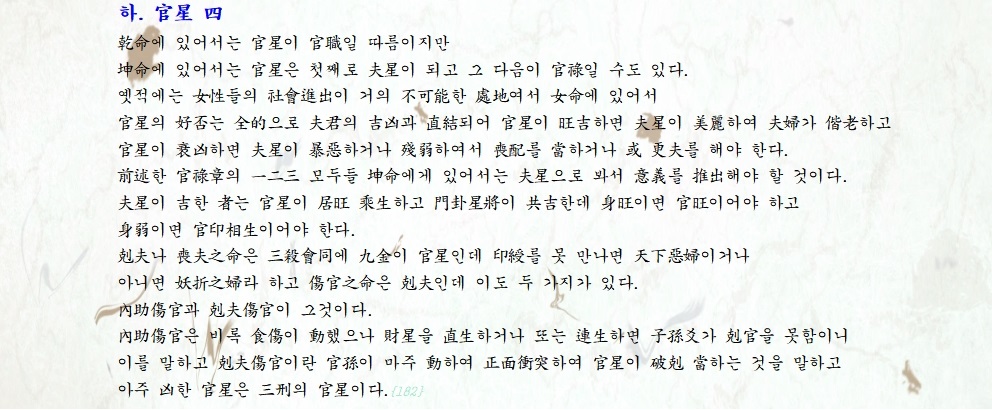 하. 官星 四
乾命에 있어서는 官星이 官職일 따름이지만
坤命에 있어서는 官星은 첫째로 夫星이 되고 그 다음이 官祿일 수도 있다.
옛적에는 女性들의 社會進出이 거의 不可能한 處地여서 女命에 있어서
官星의 好否는 全的으로 夫君의 吉凶과 直結되어 官星이 旺吉하면 夫星이 美麗하여 夫婦가 偕老하고
官星이 衰凶하면 夫星이 暴惡하거나 殘弱하여서 喪配를 當하거나 或 更夫를 해야 한다.
前述한 官祿章의 一二三 모두들 坤命에게 있어서는 夫星으로 봐서 意義를 推出해야 할 것이다.
夫星이 吉한 者는 官星이 居旺 乘生하고 門卦星將이 共吉한데 身旺이면 官旺이어야 하고
身弱이면 官印相生이어야 한다.
剋夫나 喪夫之命은 三殺會同에 九金이 官星인데 印綬를 못 만나면 天下惡婦이거나
아니면 妖折之婦라 하고 傷官之命은 剋夫인데 이도 두 가지가 있다.
內助傷官과 剋夫傷官이 그것이다.
內助傷官은 비록 食傷이 動했으나 財星을 直生하거나 또는 連生하면 子孫爻가 剋官을 못함이니
이를 말하고 剋夫傷官이란 官孫이 마주 動하여 正面衝突하여 官星이 破剋 當하는 것을 말하고
아주 凶한 官星은 三刑의 官星이다.{182}